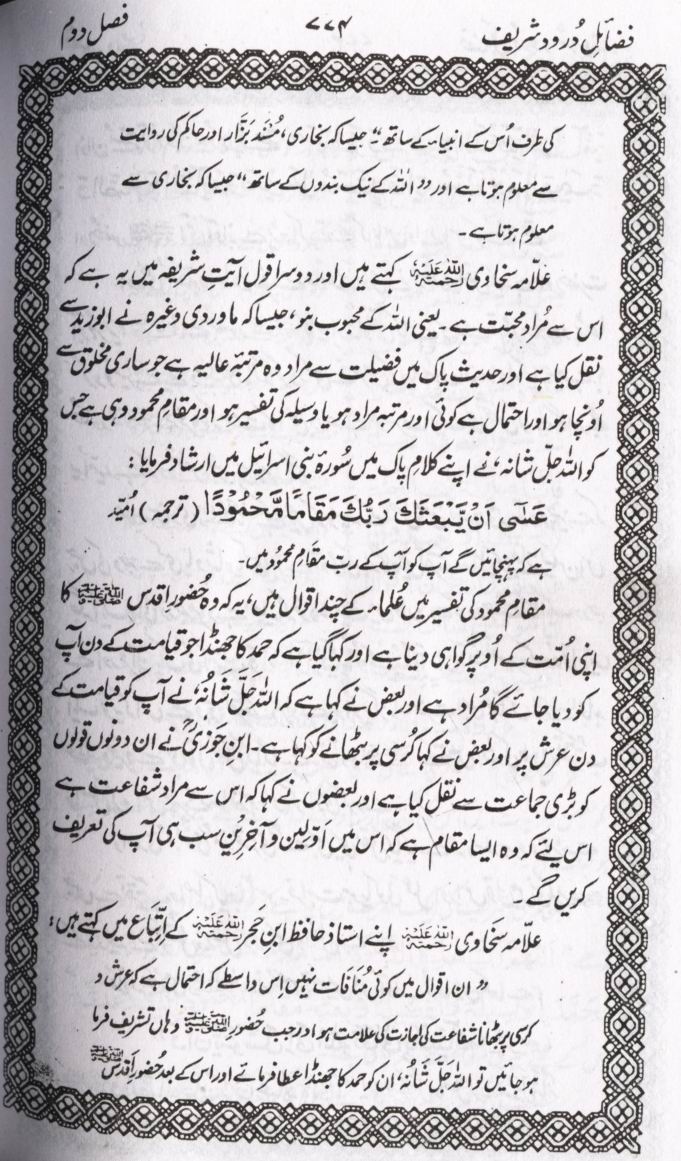 فضائلِ درود شریف ۷۷۴ فصل دوم
کی طرف اُس کے انبیاء کے ساتھ“ جیسا کہ بخاری، مُسندِ بزّار اور حاکم کی روایت
سے معلوم ہوتا ہے اور ”اللہ کے نیک بندوں کے ساتھ“ جیسا کہ بخاری سے
معلوم ہوتا ہے۔
علّامہ سخاوی رحمۃ اللہ علیہ کہتے ہیں اور دوسرا قول آیتِ شریفہ میں یہ ہے کہ
اس سے مُراد محبّت ہے۔ یعنی اللہ کے محبوب بنو، جیسا کہ ماوردی وغیرہ نے ابوزید سے
نقل کیا ہے اور حدیث پاک میں فضیلت سے مراد وہ مرتبۂ عالیہ ہے جو ساری مخلوق سے
اُونچا ہو اور احتمال ہے کوئی اور مرتبہ مراد ہو یا وسیلہ کی تفسیر ہو اور مقامِ محمود وہی ہے جس
کو اللہ جلّ شانہٗ نے اپنے کلامِ پاک میں سُورۂ بنی اسرائیل میں ارشاد فرمایا :
عَسٰٓى اَنْ يَّبْعَثَكَ رَبُّكَ مَقَامًا مَّحْمُوْدًا (ترجمہ) اُمّید
ہے کہ پہنچائیں گے آپ کو آپ کے رب مقامِ محمود میں۔
مقامِ محمود کی تفسیر میں عُلماء کے چند اقوال ہیں، یہ کہ وہ حُضورِ اقدس ﷺ کا
اپنی اُمّت کے اُوپر گواہی دینا ہے اور کہا گیا ہے کہ حمد کا جھنڈا جو قیامت کے دن آپ
کو دیا جائے گا مُراد ہے اور بعض نے کہا ہے کہ اللہ جَلَّ شَانُہٗ نے آپ کو قیامت کے
دن عرش پر اور بعض نے کہا کُرسی پر بٹھانے کو کہا ہے۔ ابنِ جوزیؒ نے ان دونوں قولوں
کو بڑی جماعت سے نقل کیا ہے اور بعضوں نے کہا کہ اس سے مراد شفاعت ہے
اس لئے کہ وہ ایسا مقام ہے کہ اس میں اوّلین و آخرین سب ہی آپ کی تعریف
کریں گے۔
علّامہ سخاوی رحمۃ اللہ علیہ اپنے استاذ حافظ ابنِ حَجر رحمۃ اللہ علیہ کے اِتّباع میں کہتے ہیں :
”ان اقوال میں کوئی مُنافات نہیں اِس واسطے کہ احتمال ہے کہ عرش و
کرسی پر بٹھانا شفاعت کی اجازت کی علامت ہو اور جب حُضور ﷺ وہاں تشریف فرما
ہو جائیں تو اللہ جَلَّ شَانُہٗ، ان کو حمد کا جھنڈا عطا فرمائے اور اس کے بعد حُضورِ اَقدس ﷺ